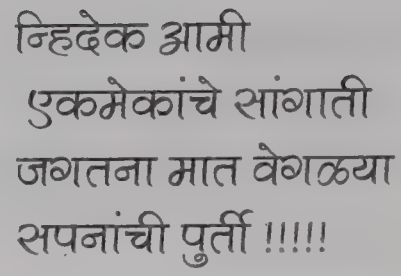 न्हिदेक आमी
एकमेकांचे सांगाती
जगतना मात वेगळया
सपनांची पुर्ती !!!!!